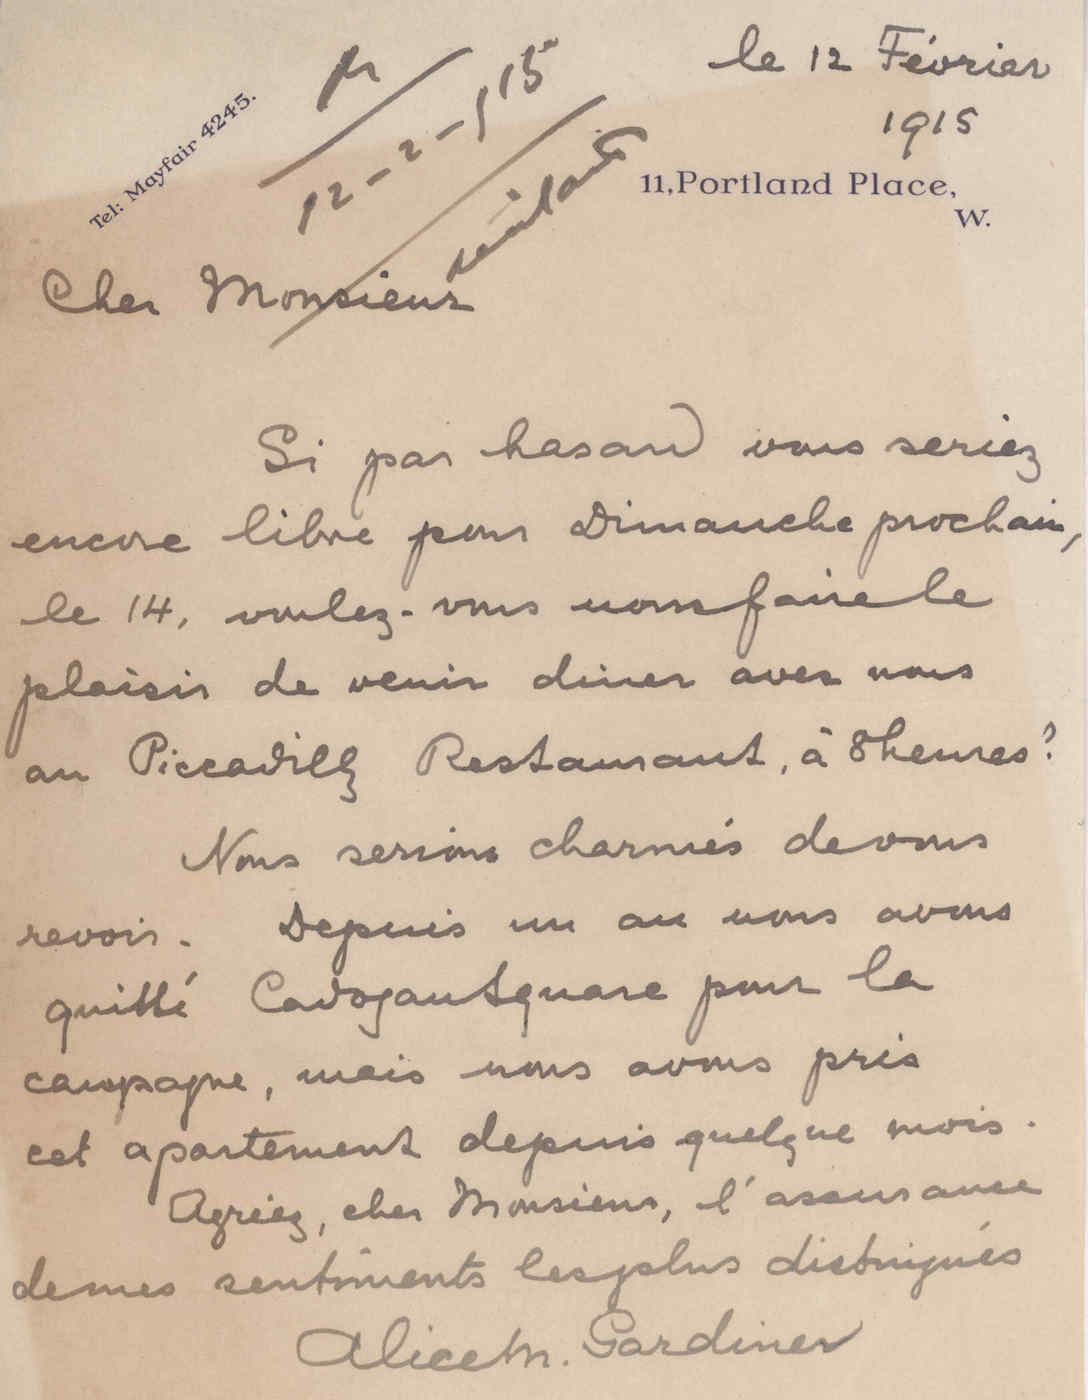 le 12 Février
1915
Tel: Mayfair 4245.
12-2-1915
11, Portland Place,
W.
Cher Monsieur
Si par hasard vous seriez
encore libre pour Dimanche prochain,
le 14, voulez-vous nous faire le
plaisir de venir diner avec nous
au Piccadilly Restaurant, à 8 heures?
Nous serions charmés de vous
revoir. Depuis un an nous avons
quitté Cadogan Square pour la
campagne, mais nous avons pris
cet apartement depuis quelque mois.
Agriez, cher Monsieur, l'assurance
de mes sentiments les plus distingués
Alice M. Gardiner